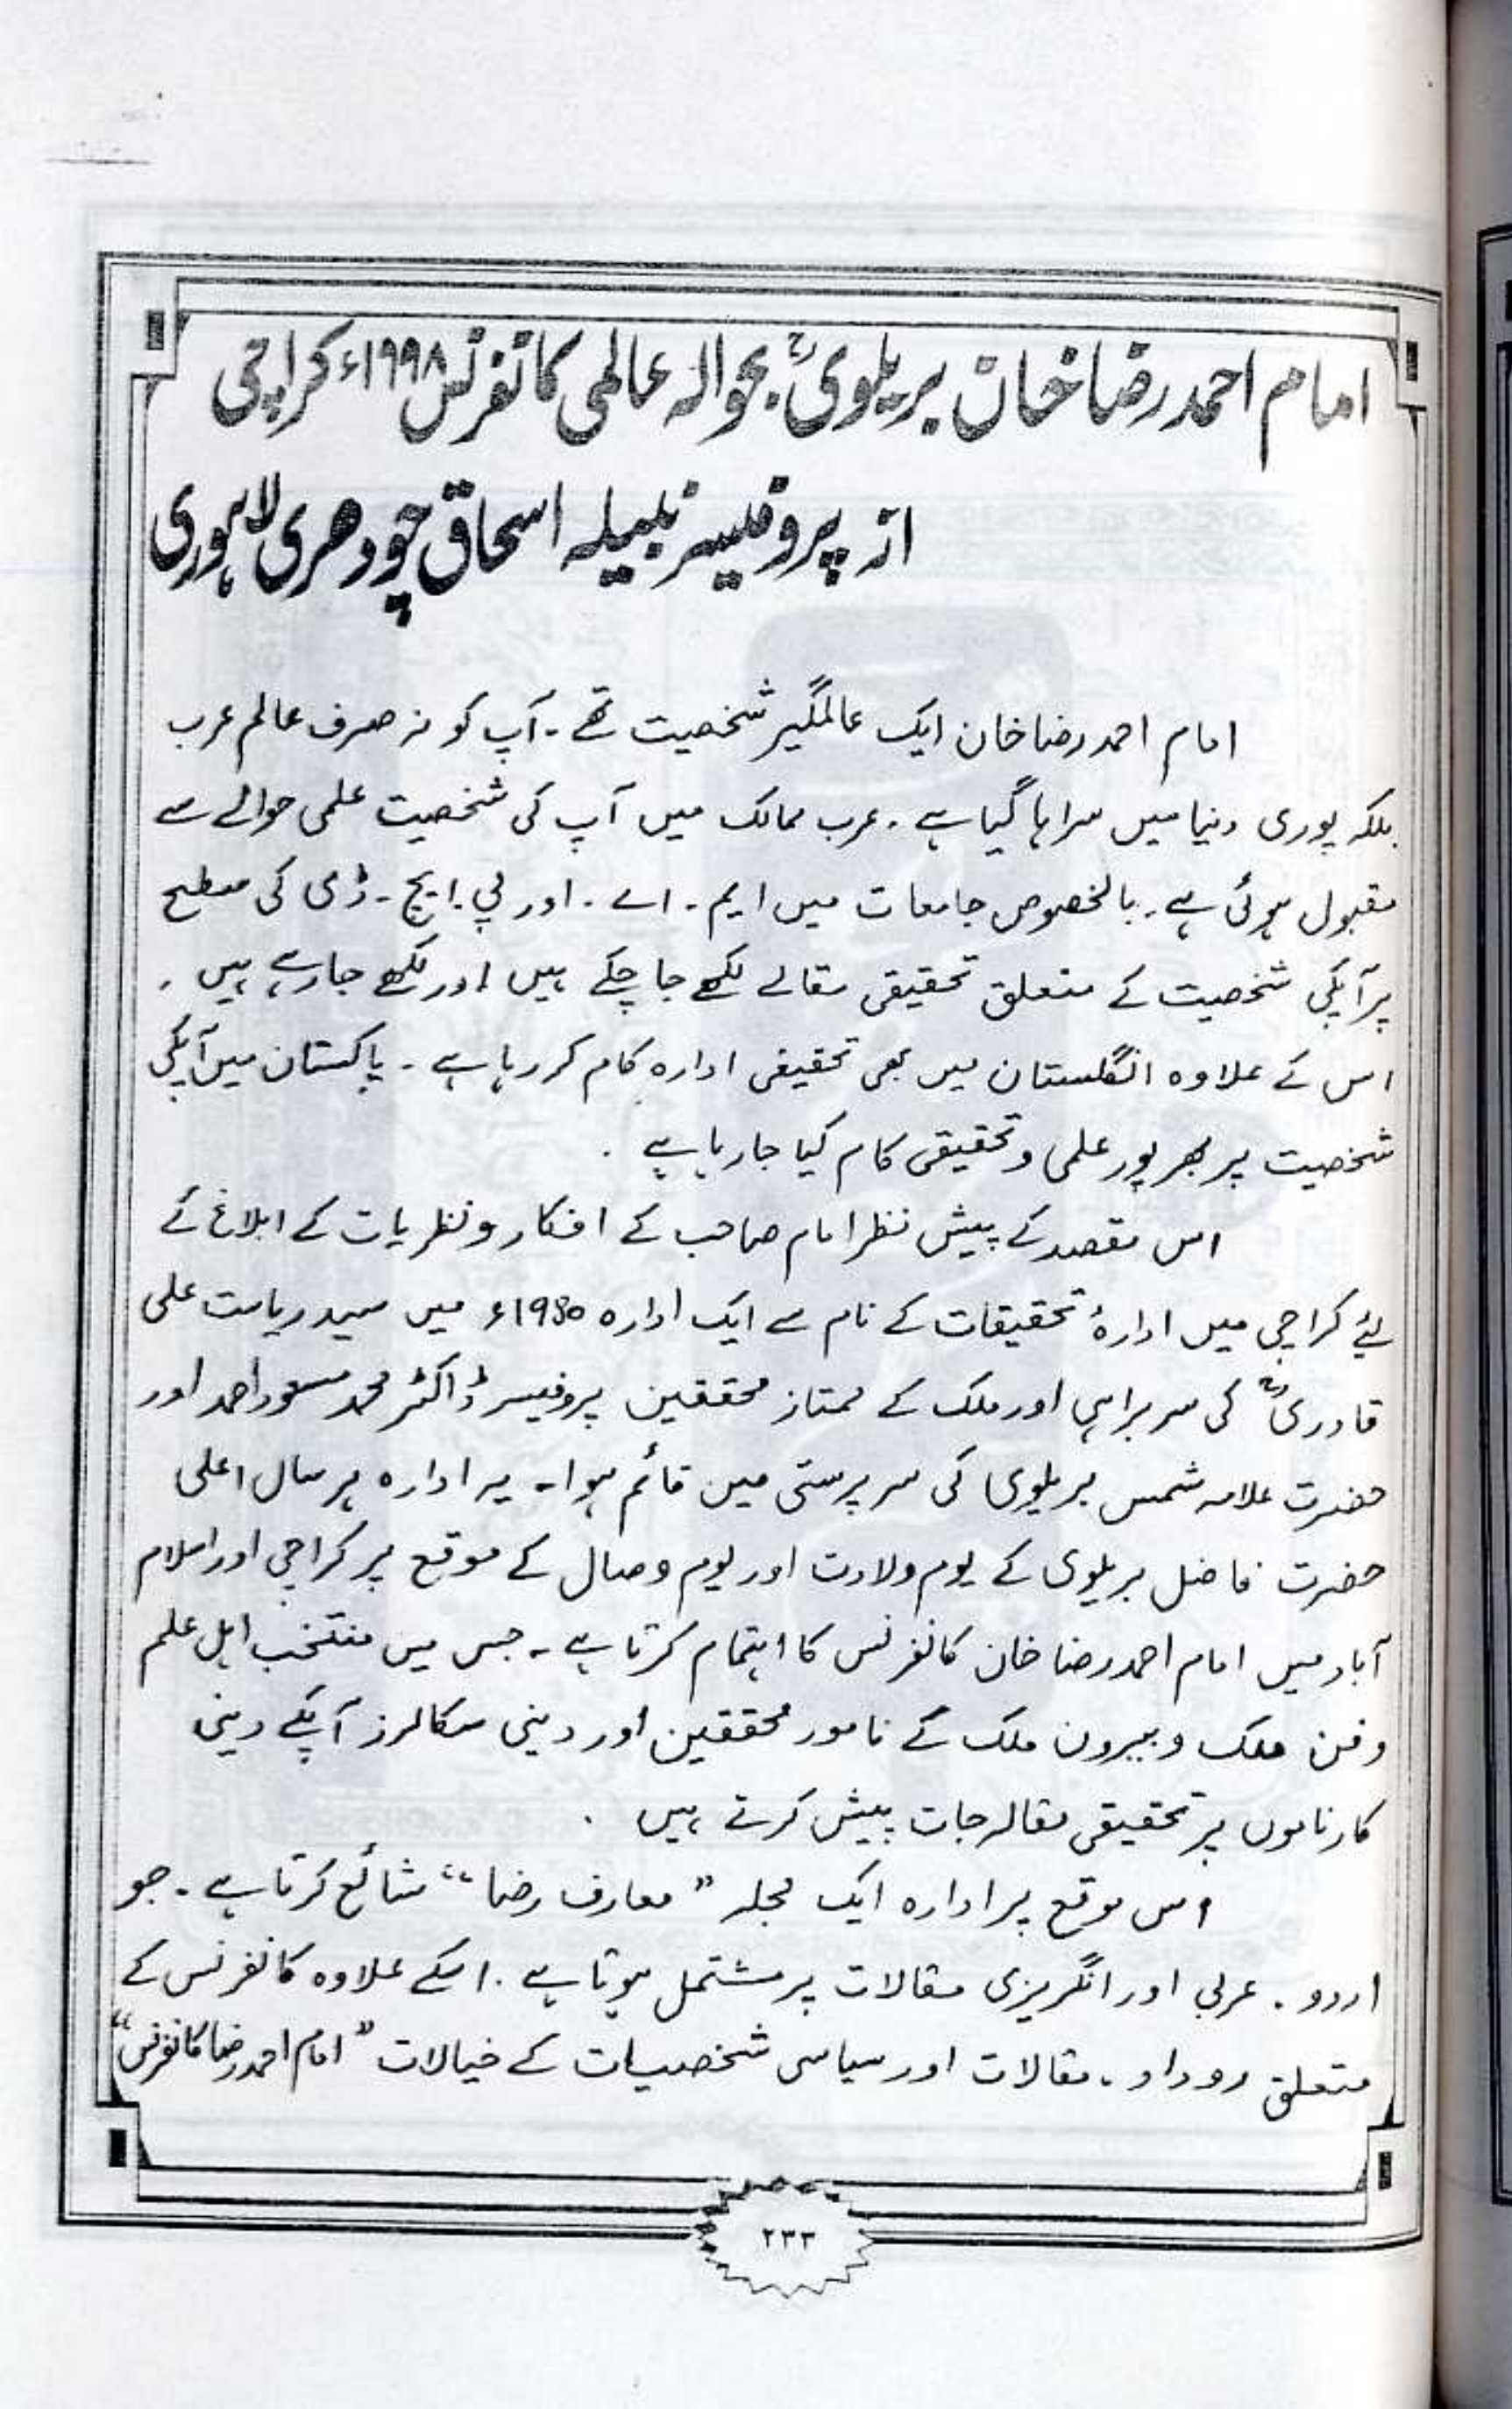 امام احمد رضا خان بریلویؒ بحوالہ عالمی کانفرنس ۱۹۹۸ء کراچی
از پروفیسر نبیلہ اسحاق چودھری لاہوری
امام احمد رضا خان ایک عالمگیر شخصیت تھے۔ آپ کو نہ صرف عالم عرب
بلکہ پوری دنیا میں سراہا گیا ہے۔ عرب ممالک میں آپ کی شخصیت علمی حوالے سے
مقبول ہوئی ہے۔ بالخصوص جامعات میں ایم۔ اے۔ اور پی۔ ایچ۔ ڈی کی سطح
پر آپکی شخصیت کے متعلق تحقیقی مقالے لکھے جا چکے ہیں اور لکھے جا رہے ہیں۔
اس کے علاوہ انگلستان میں بھی تحقیقی ادارہ کام کر رہا ہے۔ پاکستان میں آپکی
شخصیت پر بھرپور علمی و تحقیقی کام کیا جا رہا ہے۔
اس مقصد کے پیش نظر امام صاحب کے افکار و نظریات کے ابلاغ کے
لئے کراچی میں ادارۂ تحقیقات کے نام سے ایک ادارہ 1980ء میں سید ریاست علی
قادریؒ کی سربراہی اور ملک کے ممتاز محققین پروفیسر ڈاکٹر محمد مسعود احمد اور
حضرت علامہ شمس بریلوی کی سرپرستی میں قائم ہوا۔ یہ ادارہ ہر سال اعلی
حضرت فاضل بریلوی کے یوم ولادت اور یوم وصال کے موقع پر کراچی اور اسلام
آباد میں امام احمد رضا خان کانفرنس کا اہتمام کرتا ہے۔ جس میں منتخب اہل علم
و فن ملک و بیرون ملک کے نامور محققین اور دینی سکالرز آپکے دینی
کارناموں پر تحقیقی مقالہ جات پیش کرتے ہیں۔
اس موقع پر ادارہ ایک مجلہ ”معارف رضا“ شائع کرتا ہے۔ جو
اردو۔ عربی اور انگریزی مقالات پر مشتمل ہوتا ہے۔ اسکے علاوہ کانفرنس کے
متعلق روداو، مقالات اور سیاسی شخصیات کے خیالات ”امام احمد رضا کانفرنس“
۲۳۳